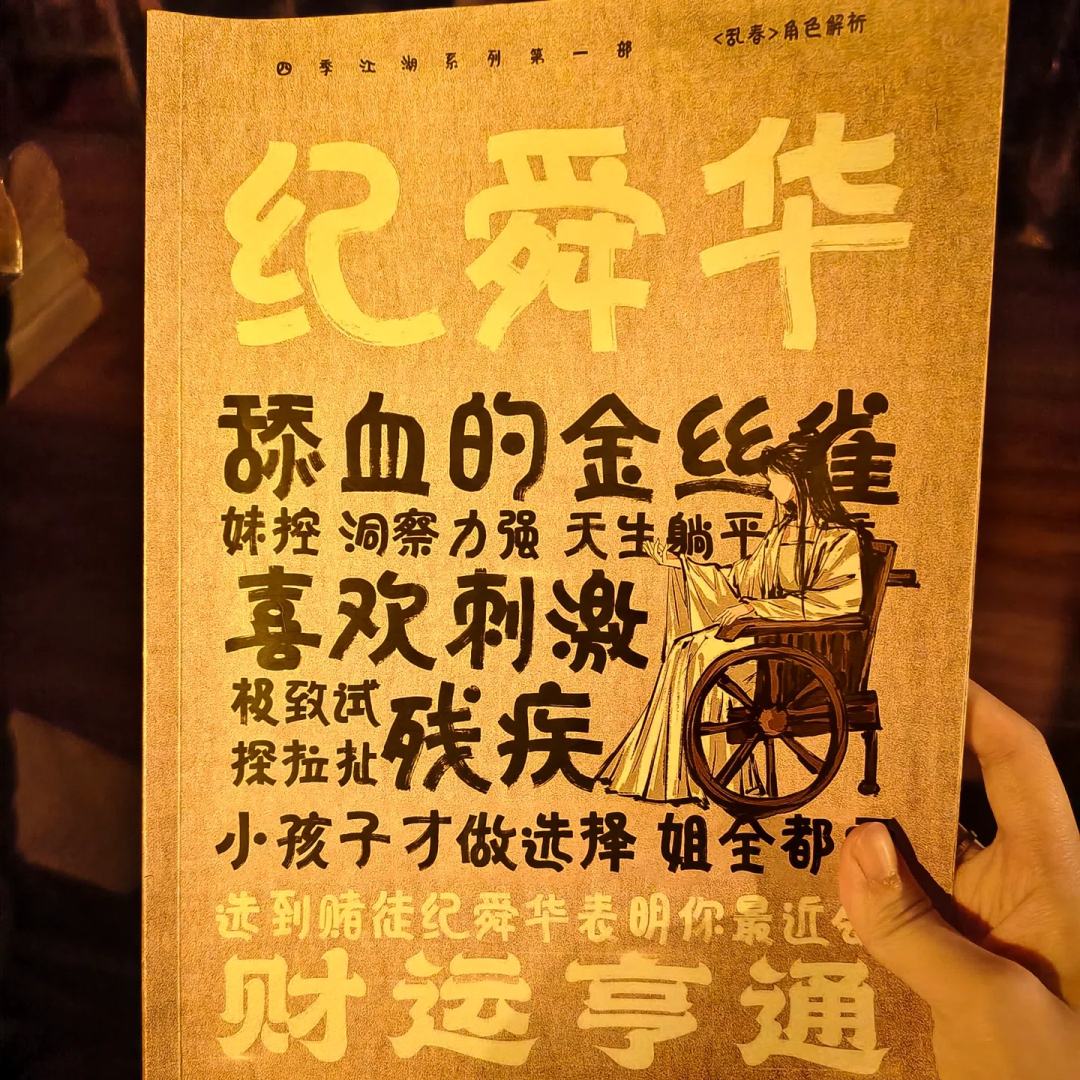 四季江湖系列第一部
<乱春>角色解析
纪舜华
舔血的金丝雀
妹控 洞察力强 天生躺平
喜欢刺激
极致试
探拉扯
残疾
小孩子才做选择 姐全都
选到赌徒纪舜华表明你最近会
财运亨通